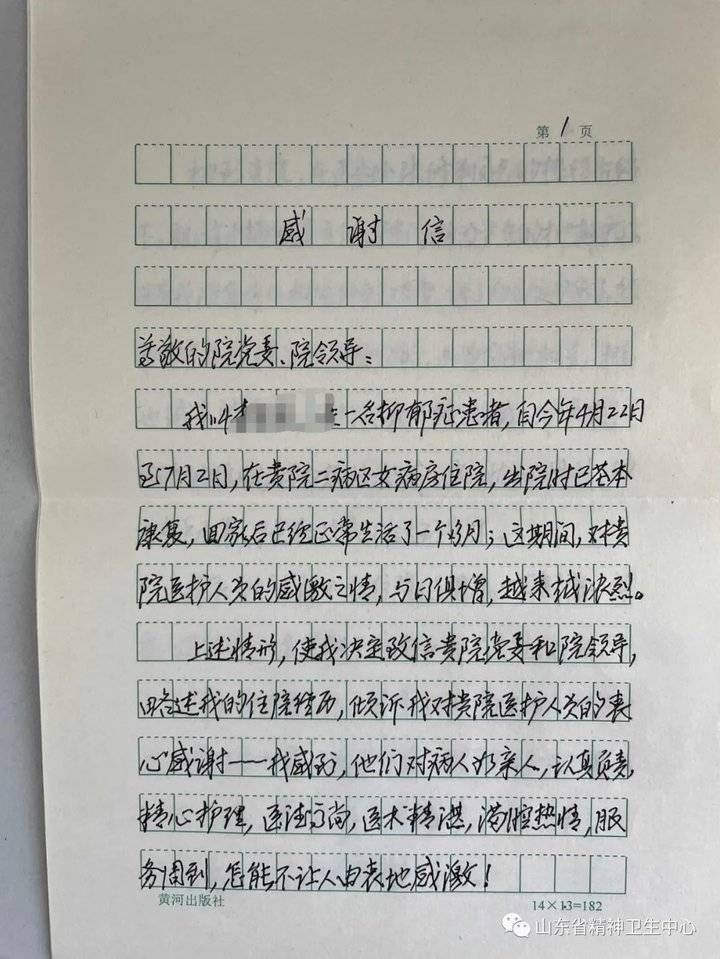 第1页
感谢信
尊敬的院党委、院领导:
我叫 一名抑郁症患者,自今年4月22日
至7月2日,在贵院二病区女病房住院,出院时已基本
康复,回家后已经正常生活了一个多月;这期间,对贵
院医护人员的感激之情,与日俱增,越来越浓烈。
上述情形,使我决定致信贵院党委和院领导,
略述我的住院经历,倾诉我对贵院医护人员的衷
心感谢——我感到,他们对病人如亲人,认真负责,
精心护理,医德高尚,医术精湛,满腔热情,服
务周到,怎能不让人由衷地感激!
黄河出版社
14×13=182
山东省精神卫生中心